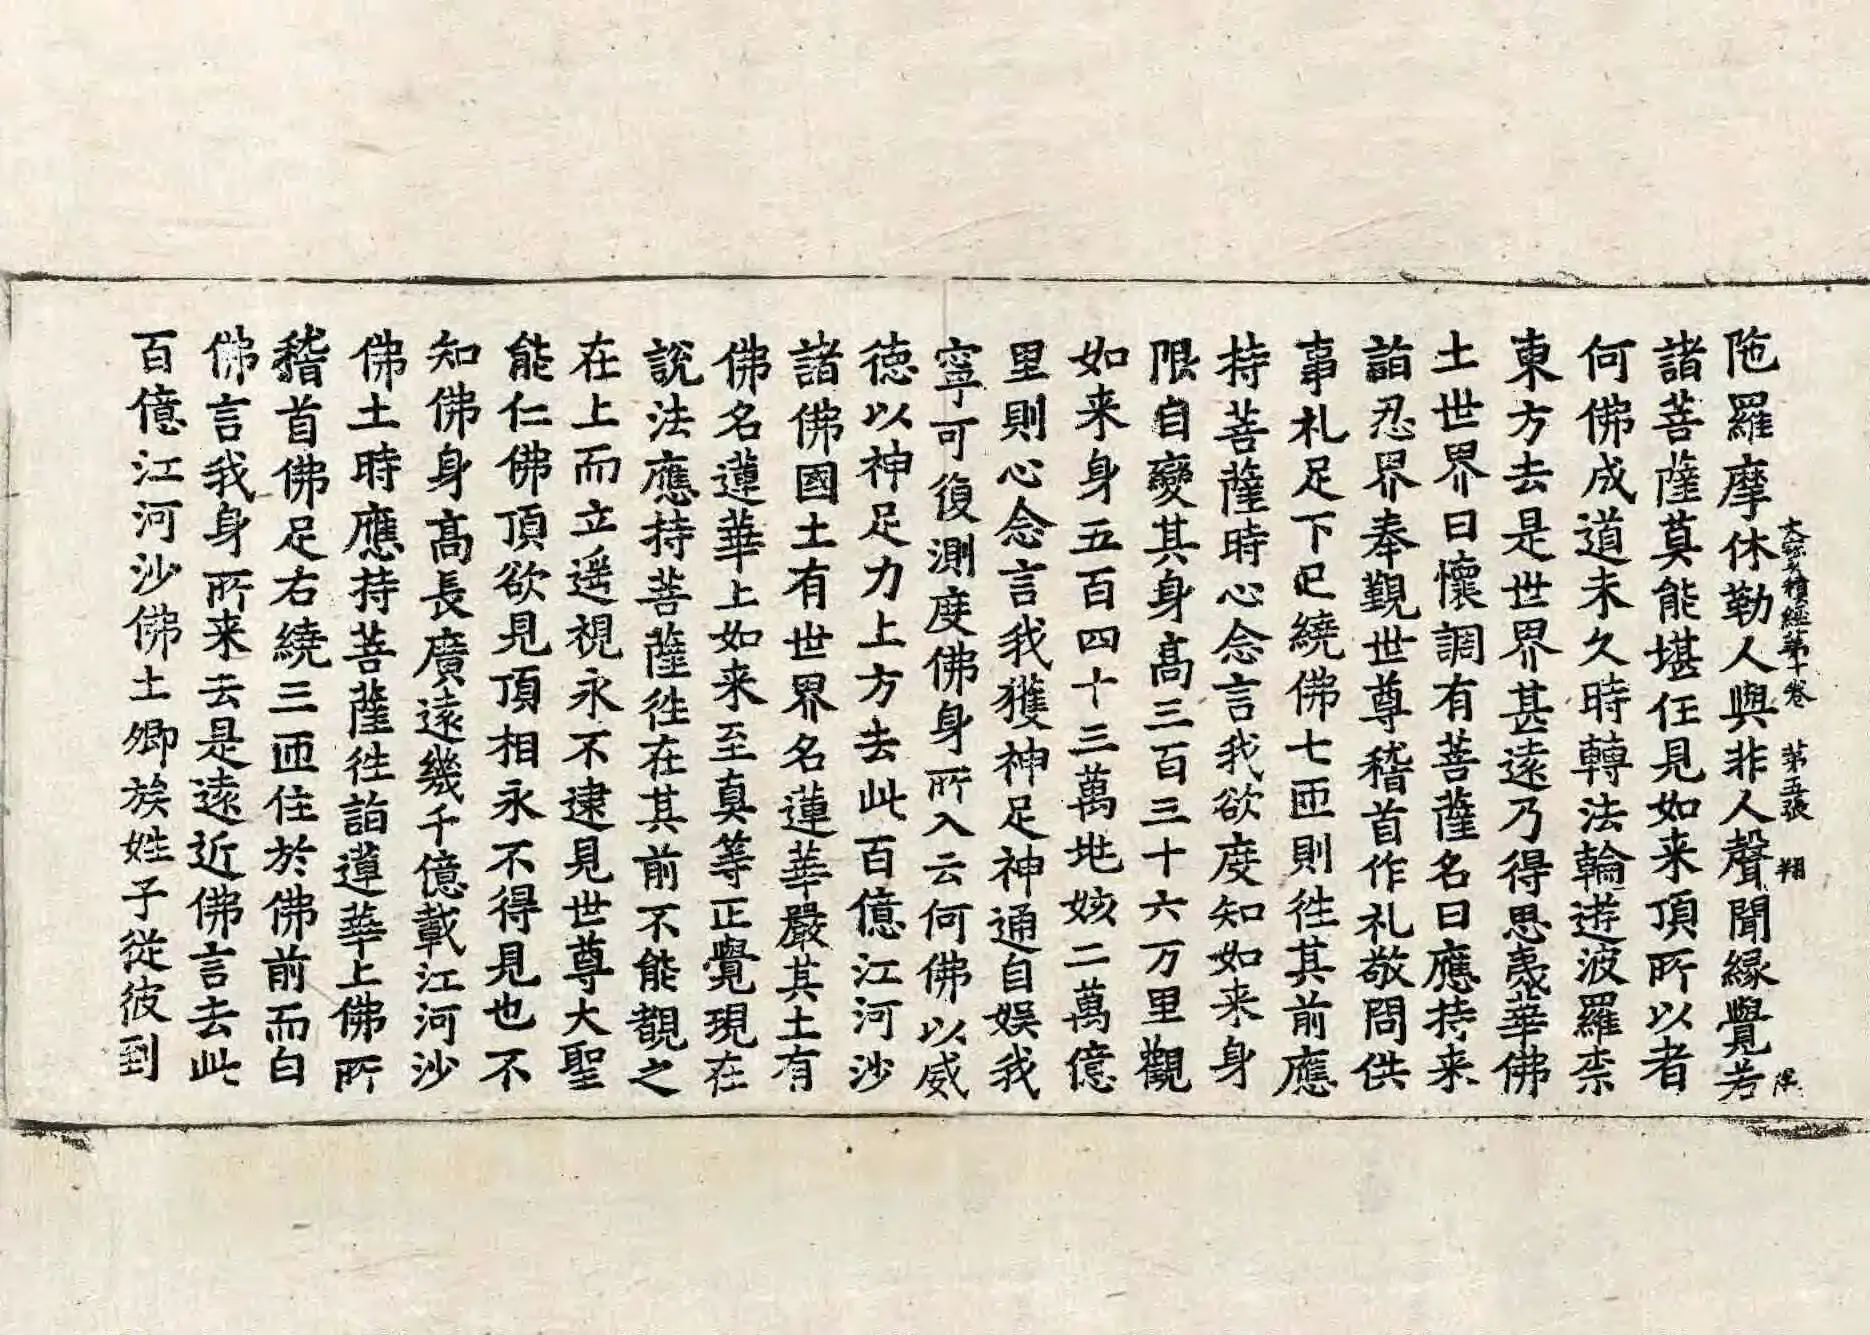 大寶積經第十卷 第五張 翔
陁羅摩休勒人與非人聲聞緣覺若
諸菩薩莫能堪任見如来頂所以者
何佛成道未久時轉法輪遊波羅柰
東方去是世界甚遠乃得思夷華佛
土世界曰懷調有菩薩名曰應持来
詣忍界奉覲世尊稽首作礼敬問供
事礼足下已繞佛七匝則往其前應
持菩薩時心念言我欲度知如来身
限自變其身高三百三十六万里觀
如来身五百四十三萬地姟二萬億
里則心念言我獲神足神通自娛我
寧可復測度佛身所入云何佛以威
德以神足力上方去此百億江河沙
諸佛國土有世界名蓮華嚴其土有
佛名蓮華上如来至真等正覺現在
說法應持菩薩往在其前不能覩之
在上而立遥視永不逮見世尊大聖
能仁佛頂欲見頂相永不得見也不
知佛身高長廣遠幾千億載江河沙
佛土時應持菩薩往詣蓮華上佛所
稽首佛足右繞三匝住於佛前而白
佛言我身所来去是遠近佛言去此
百億江河沙佛土卿族姓子從彼到